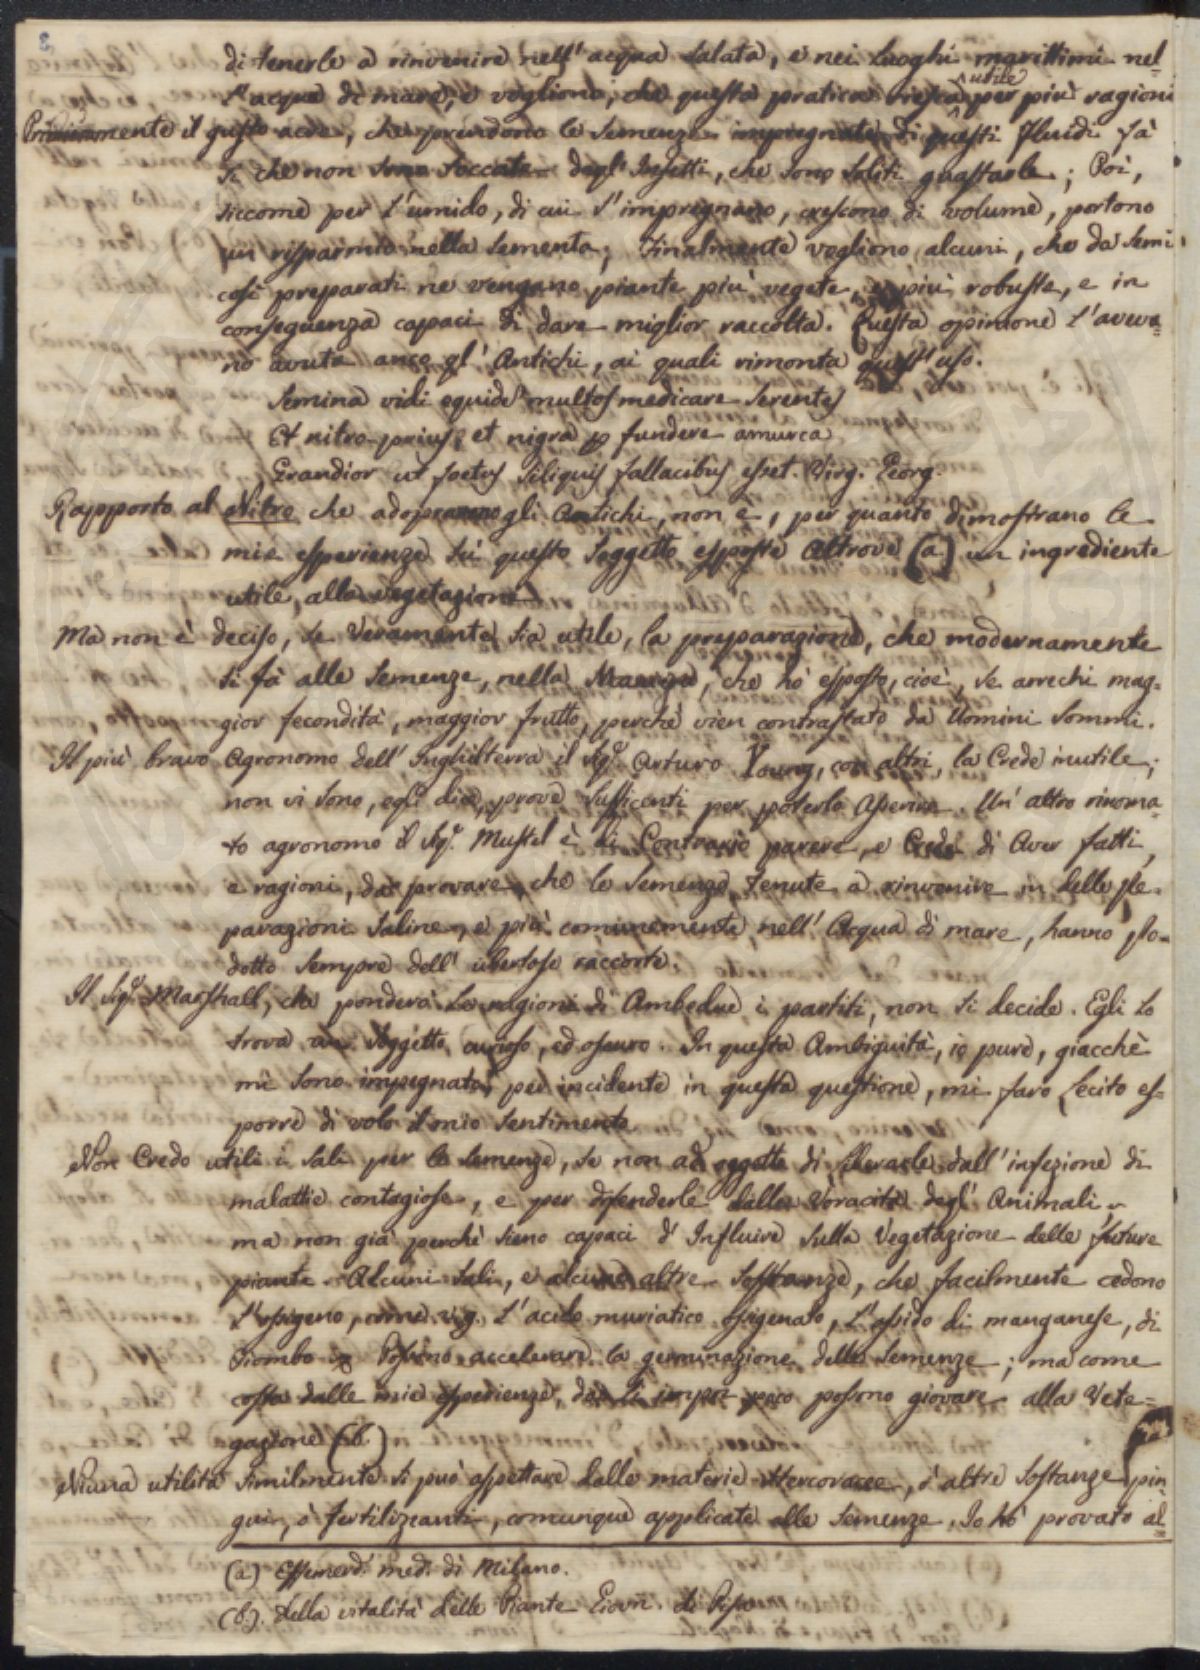 3
di tenerle a rinvenire nell'acqua salata, e nei luoghi marittimi nel=
l'acqua di mare, e vogliono, che questa pratica riesca utile per più ragioni
Primieramente il gusto acre, che prendono le semenze impregnate di questi fluidi fà
si che non sono toccate dagl'Insetti, che sono soliti guastarle; Poi,
siccome per l'umido, di cui s'impregnano, crescono di volume, portono
un risparmio nella sementa; Finalmente vogliono alcuni, che da semi
così preparati ne vengano piante più vegete, e più robuste, e in
conseguenza capaci di dare miglior raccolta. Questa opinione l'aveva=
no avuta anco gl'Antichi, ai quali rimonta quest'uso.
Semina vidi equidē multos medicare serentes
Et nitro prius, et nigra p fundere amurca
Grandior ut foetus siliquis fallacibus esset. Virg. Georg.
Rapporto al Nitro che adopravano gli Antichi, non è, per quanto dimostrano le
mie esperienze sù questo soggetto esposte altrove (a) un ingrediente
utile, alla vegetazione
Ma non è deciso, se veramente sia utile, la preparazione, che modernamente
si fà alle semenze, nella Maniera, che hò esposto, cioè, se arrechi mag=
gior fecondità, maggior frutto, perchè vien contrastato da Uomini sommi.
Il più bravo Agronomo dell'Inghilterra il Sigr. Arturo Young, con altri, la Crede inutile;
non vi sono, egli dice, prove sufficenti per poterlo Asserire. Un'altro rinoma=
to agronomo il Sigr. Mustel è di Contrario parere, e Crede di Aver fatti,
e ragioni, da provare, che le semenze tenute a rinvenire in delle pre=
parazioni saline, e più comunemente, nell'Acqua di mare, hanno pro=
dotto sempre dell'ubertose raccorte.
Il Sigr. Marshall, che pondera le ragioni di Ambedue i partiti, non si decide. Egli lo
trova un soggetto curioso, ed oscuro. In questa Ambiguità, io pure, giacchè
mi sono impegnato per incidente in questa questione, mi farò Lecito es=
porre di volo il mio sentimento
Non Credo utili i sali per le semenze, se non ad oggetto di liberarle dall'infezione di
malattie contagiose, e per difenderle dalla voracità degl'Animali
ma non già perchè sieno capaci d'Influire sulla Vegetazione delle future
piante. Alcuni sali, e alcune altre sostanze, che facilmente cedono
l'ossigeno, come v.g. l'acido muriatico ossigenato, l'ossido di manganese, di
Piombo possino accelerare la germinazione delle semenze; ma come
costa dalle mie esperienze, poco possono giovare alla Vete=
gazione (b)
Niuna utilità similmente si può aspettare dalle materie stercoracee, ò altre sostanze pin
gui, ò fertilizzanti, comunque applicate alle semenze. Io hò provato al=
(a) Effemerd. med. di Milano.
(b). Della vitalità delle Piante Giorñ. di Pisa